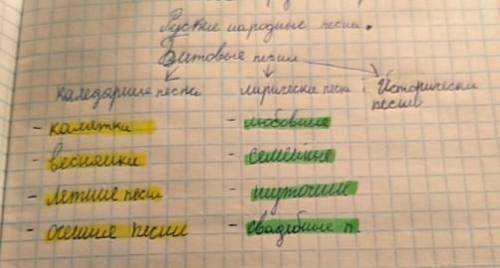 Русские народные песни.
Бытовые песни
каледарные песни лирические песни Исторические песни
- колятки - любовные
- веснянки - семейные
- летние песни - шуточные
- осенние песни - свадебные п.